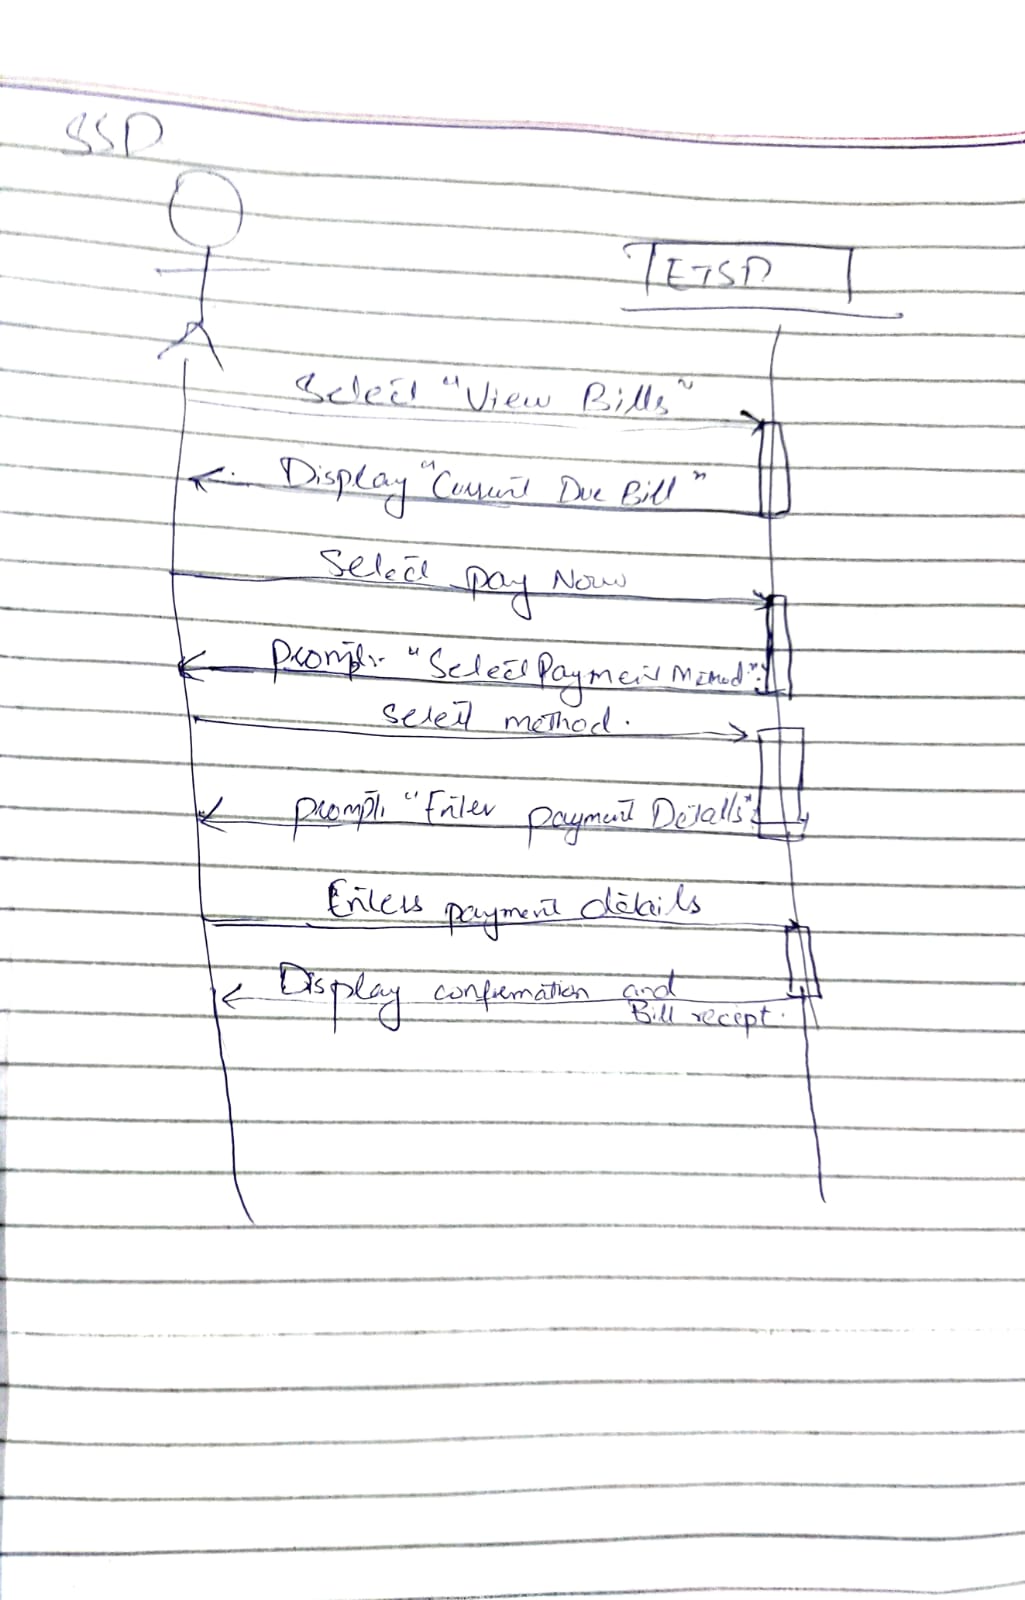 SSD
Select "View Bills"
Display "Current Due Bill"
Select pay Now
Prompt:- "Select Payment Method"
select method.
prompt: "Enter payment Details"
Enters payment details
Display confirmation and
Bill recipt.